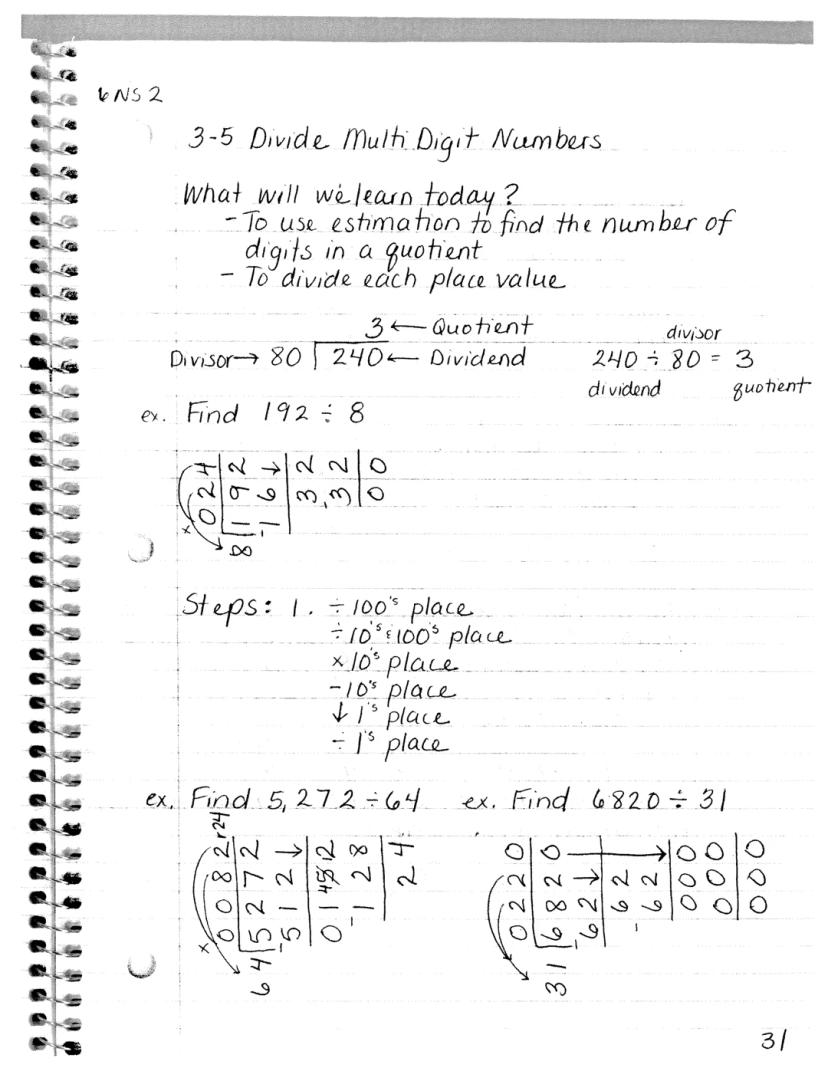 6NS2
3-5 Divide Multi Digit Numbers
What will we learn today?
- To use estimation to find the number of
digits in a quotient
- To divide each place value
3 ← Quotient
Divisor → 80 ⟌240 ← Dividend
divisor
240 ÷ 80 = 3
dividend quotient
ex. Find 192 ÷ 8
×
024
8 ⟌192
-16↓
32
-32
00
Steps: 1. ÷ 100's place
÷ 10's & 100's place
× 10's place
- 10's place
↓ 1's place
÷ 1's place
ex. Find 5,272 ÷ 64
×
0082 r24
64 ⟌5272
-512↓
01 45 12
-128
24
ex. Find 6820 ÷ 31
0220
31 ⟌6820
-62↓
62
-62
000
000
000
31